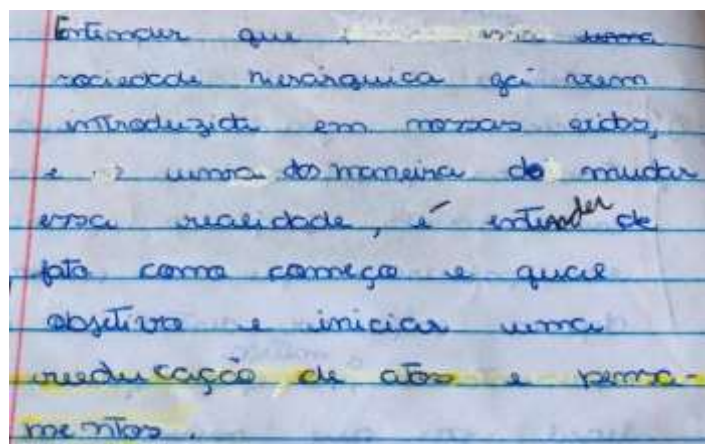 Entender que uma
sociedade hierárquica já vem
introduzida em nossas vidas,
e uma das maneira de mudar
essa realidade, é entender de
fato como começo e qual
objetivo e iniciar uma
reeducação de atos e pensa-
mentos.